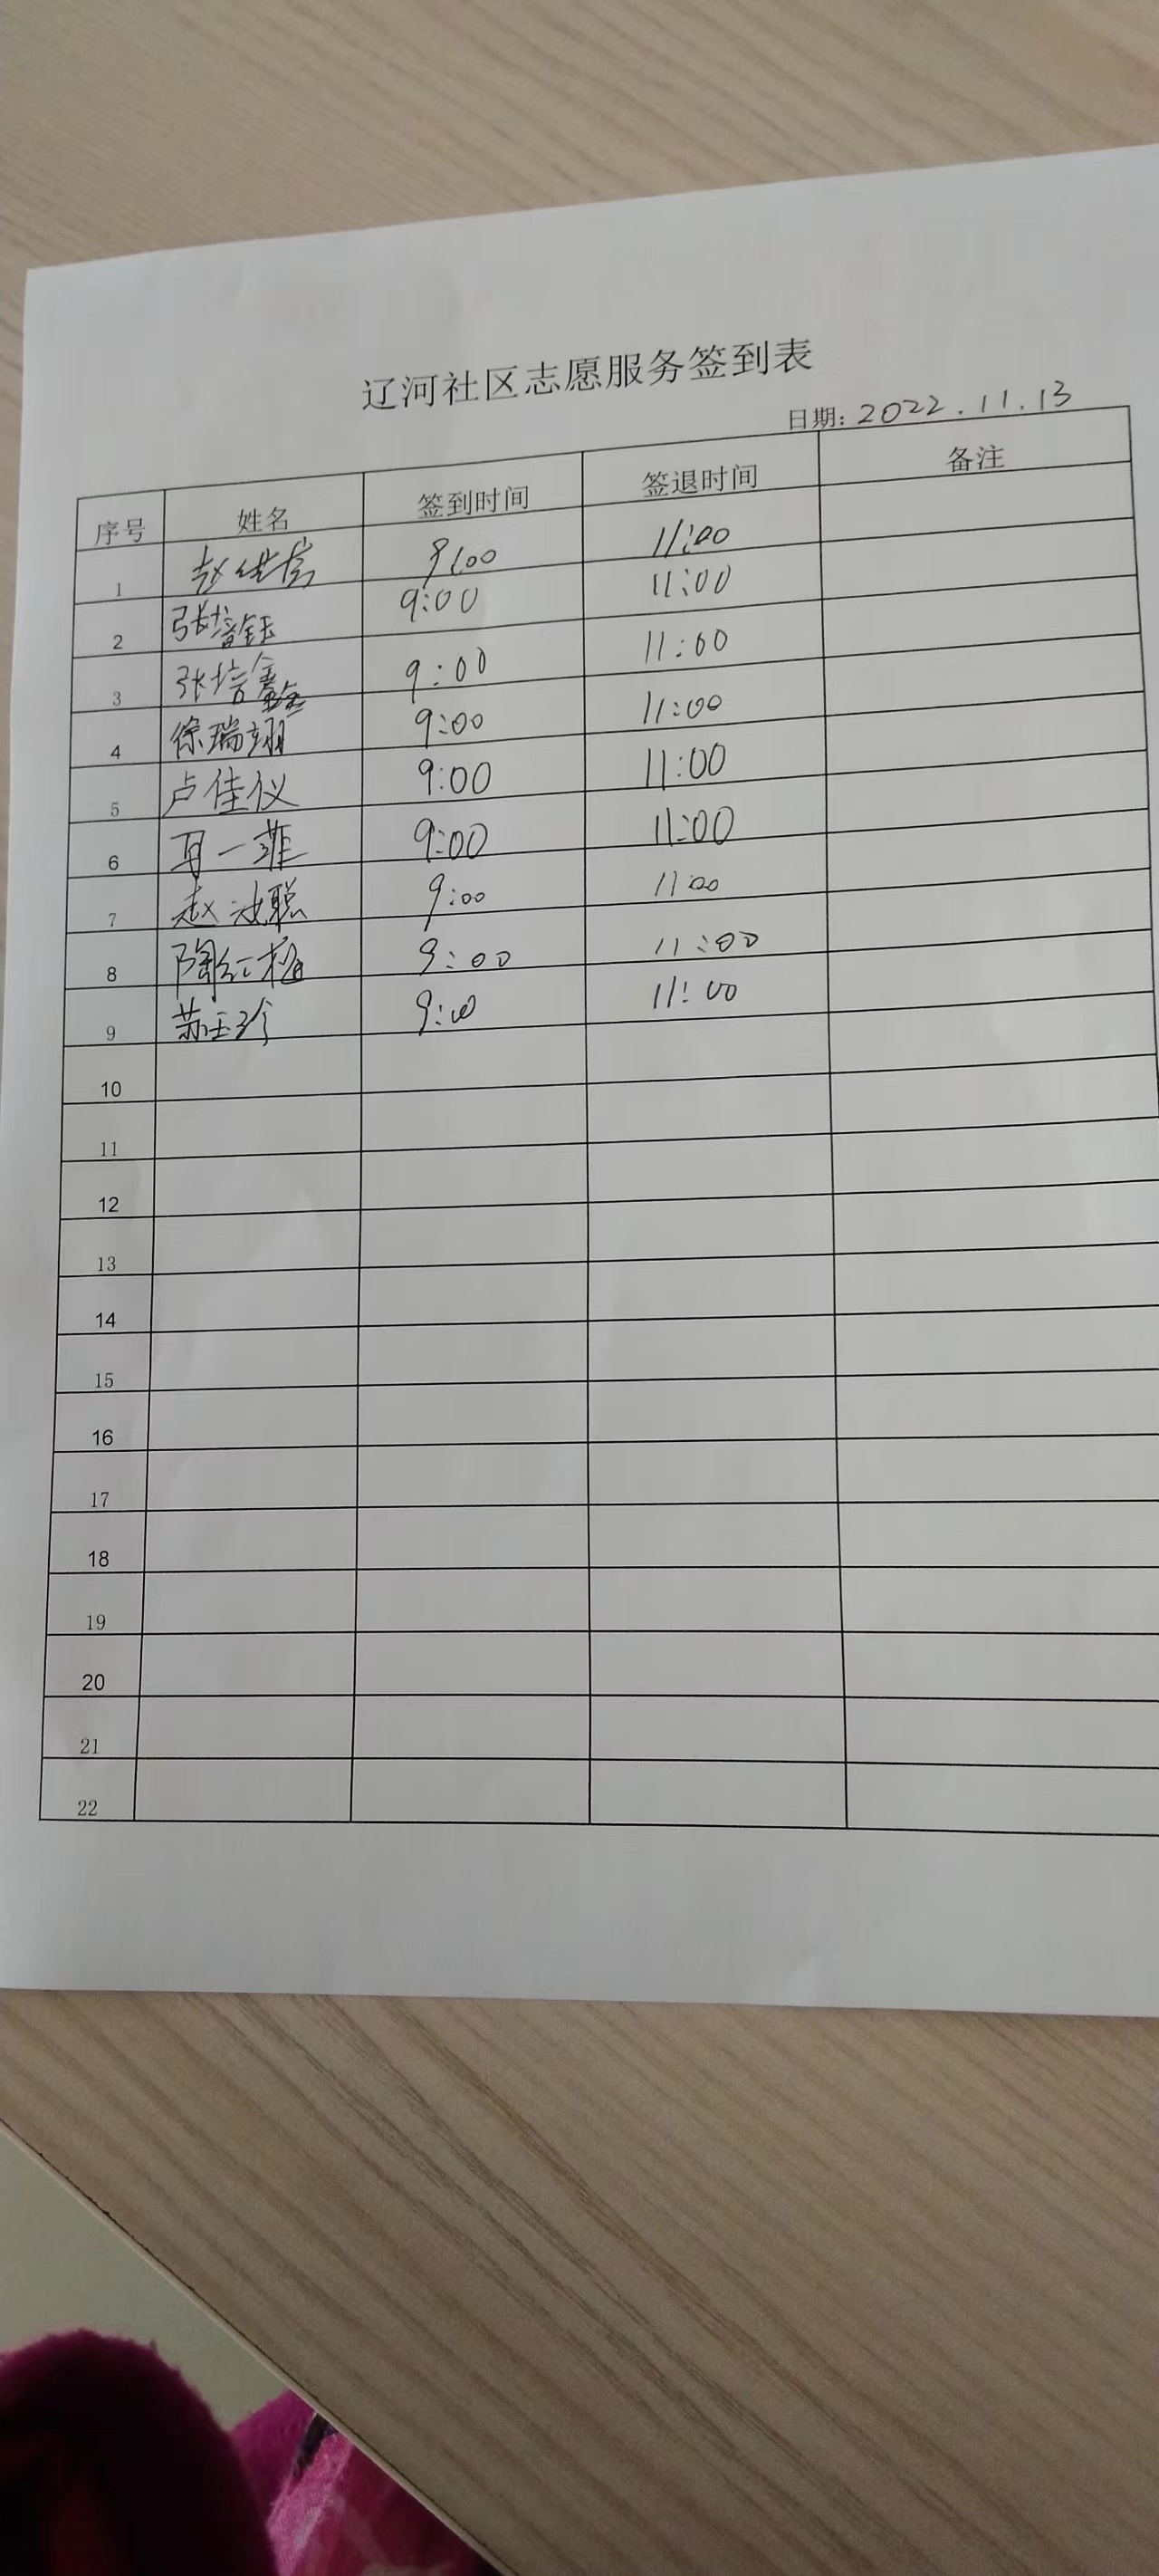 辽河社区志愿服务签到表
日期: 2022.11.13
序号 姓名 签到时间 签退时间 备注
1 赵 9:00 11:00
2 张培钰 9:00 11:00
3 张培鑫 9:00 11:00
4 徐瑞翊 9:00 11:00
5 卢佳仪 9:00 11:00
6 一菲 9:00 11:00
7 赵 聪 9:00 11:00
8 陶红梅 9:00 11:00
9 苏玉珍 9:00 11:00
10
11
12
13
14
15
16
17
18
19
20
21
22